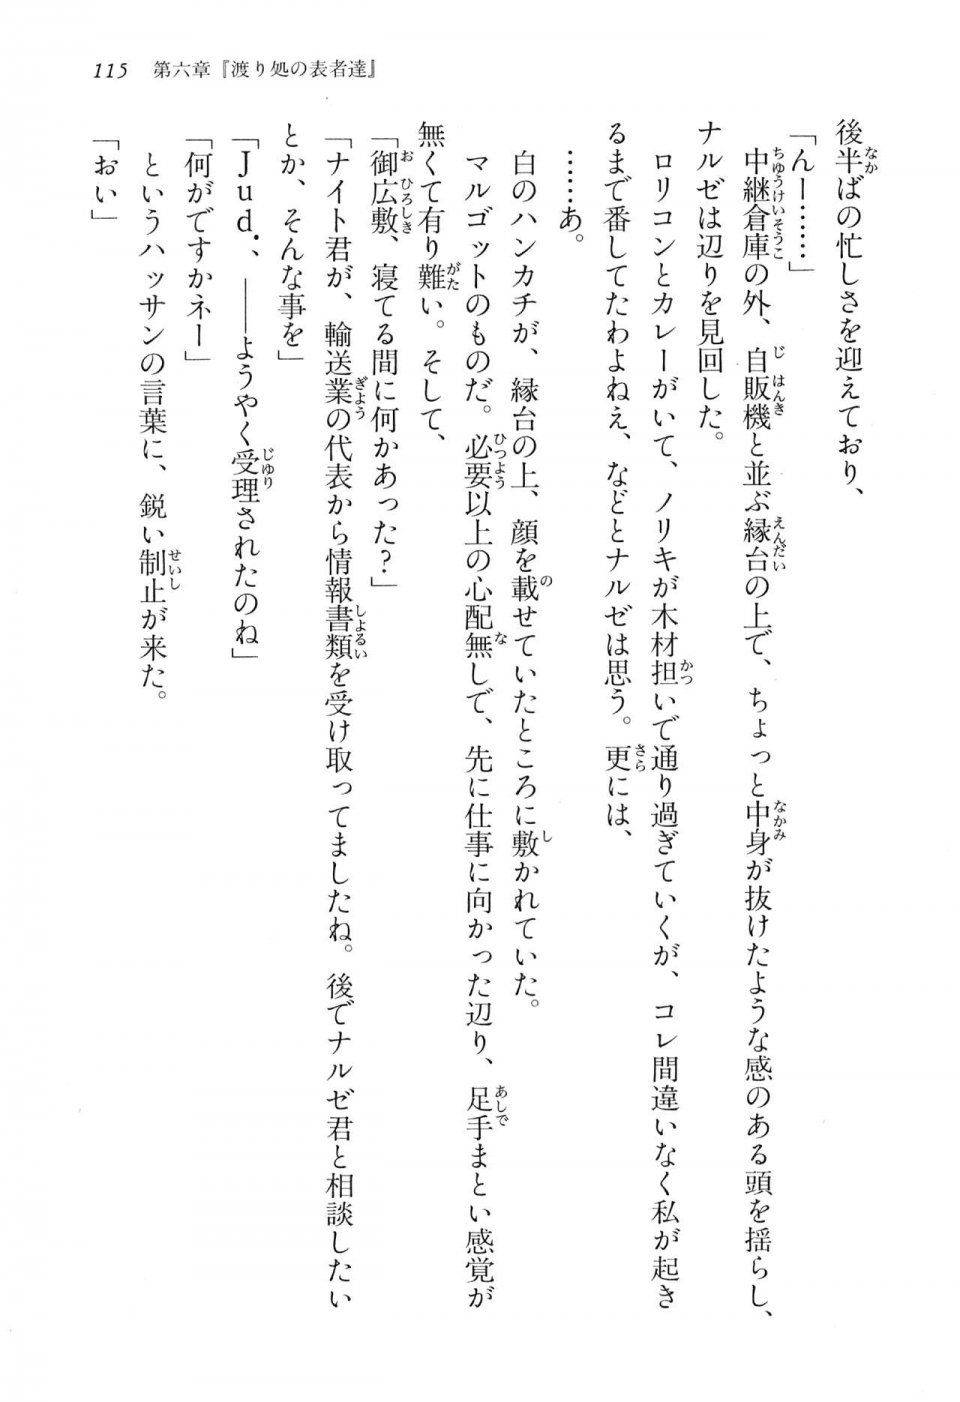 115　第六章『渡り処の表者達』
後半ばの忙しさを迎えており、
「んー……」
　中継倉庫の外、自販機と並ぶ縁台の上で、ちょっと中身が抜けたような感のある頭を揺らし、
ナルゼは辺りを見回した。
　ロリコンとカレーがいて、ノリキが木材担いで通り過ぎていくが、コレ間違いなく私が起き
るまで番してたわよねえ、などとナルゼは思う。更には、
　……あ。
　白のハンカチが、縁台の上、顔を載せていたところに敷かれていた。
　マルゴットのものだ。必要以上の心配無しで、先に仕事に向かった辺り、足手まとい感覚が
無くて有り難い。そして、
「御広敷、寝てる間に何かあった？」
「ナイト君が、輸送業の代表から情報書類を受け取ってましたね。後でナルゼ君と相談したい
とか、そんな事を」
「Ｊｕｄ．、――ようやく受理されたのね」
「何がですかネー」
　というハッサンの言葉に、鋭い制止が来た。
「おい」